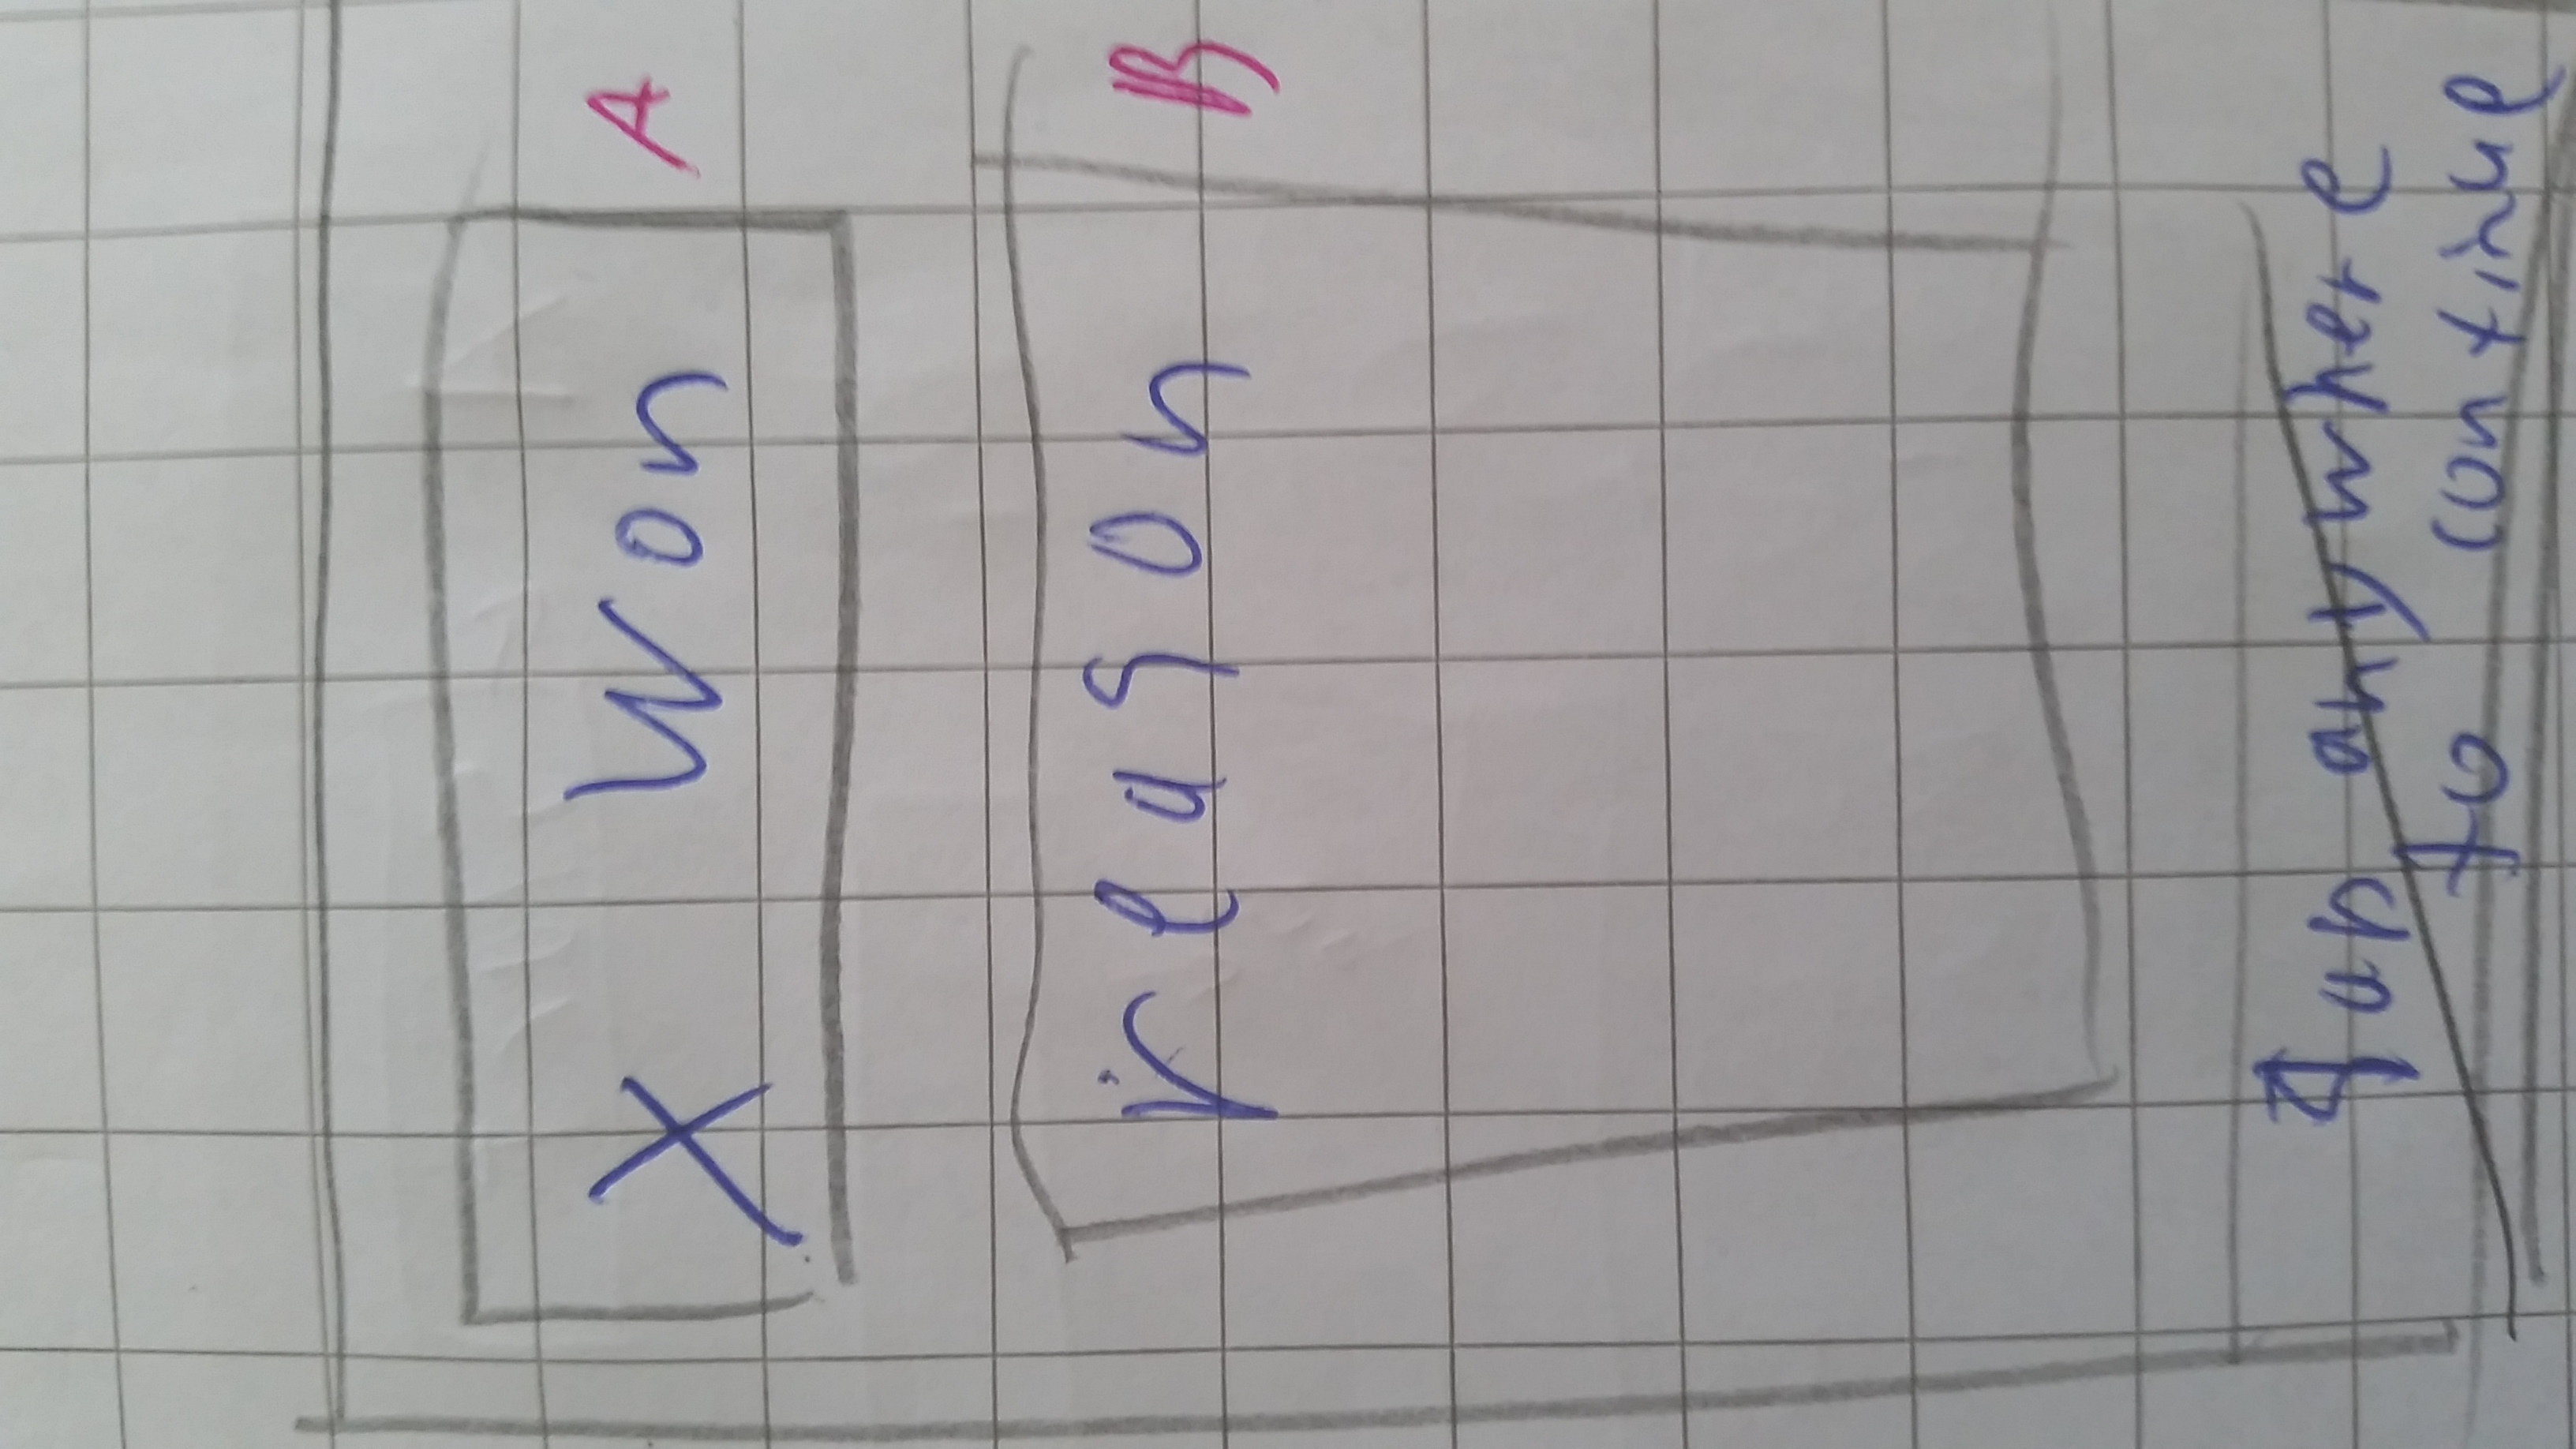 X Won A
reason B
Tap anywhere
to continue